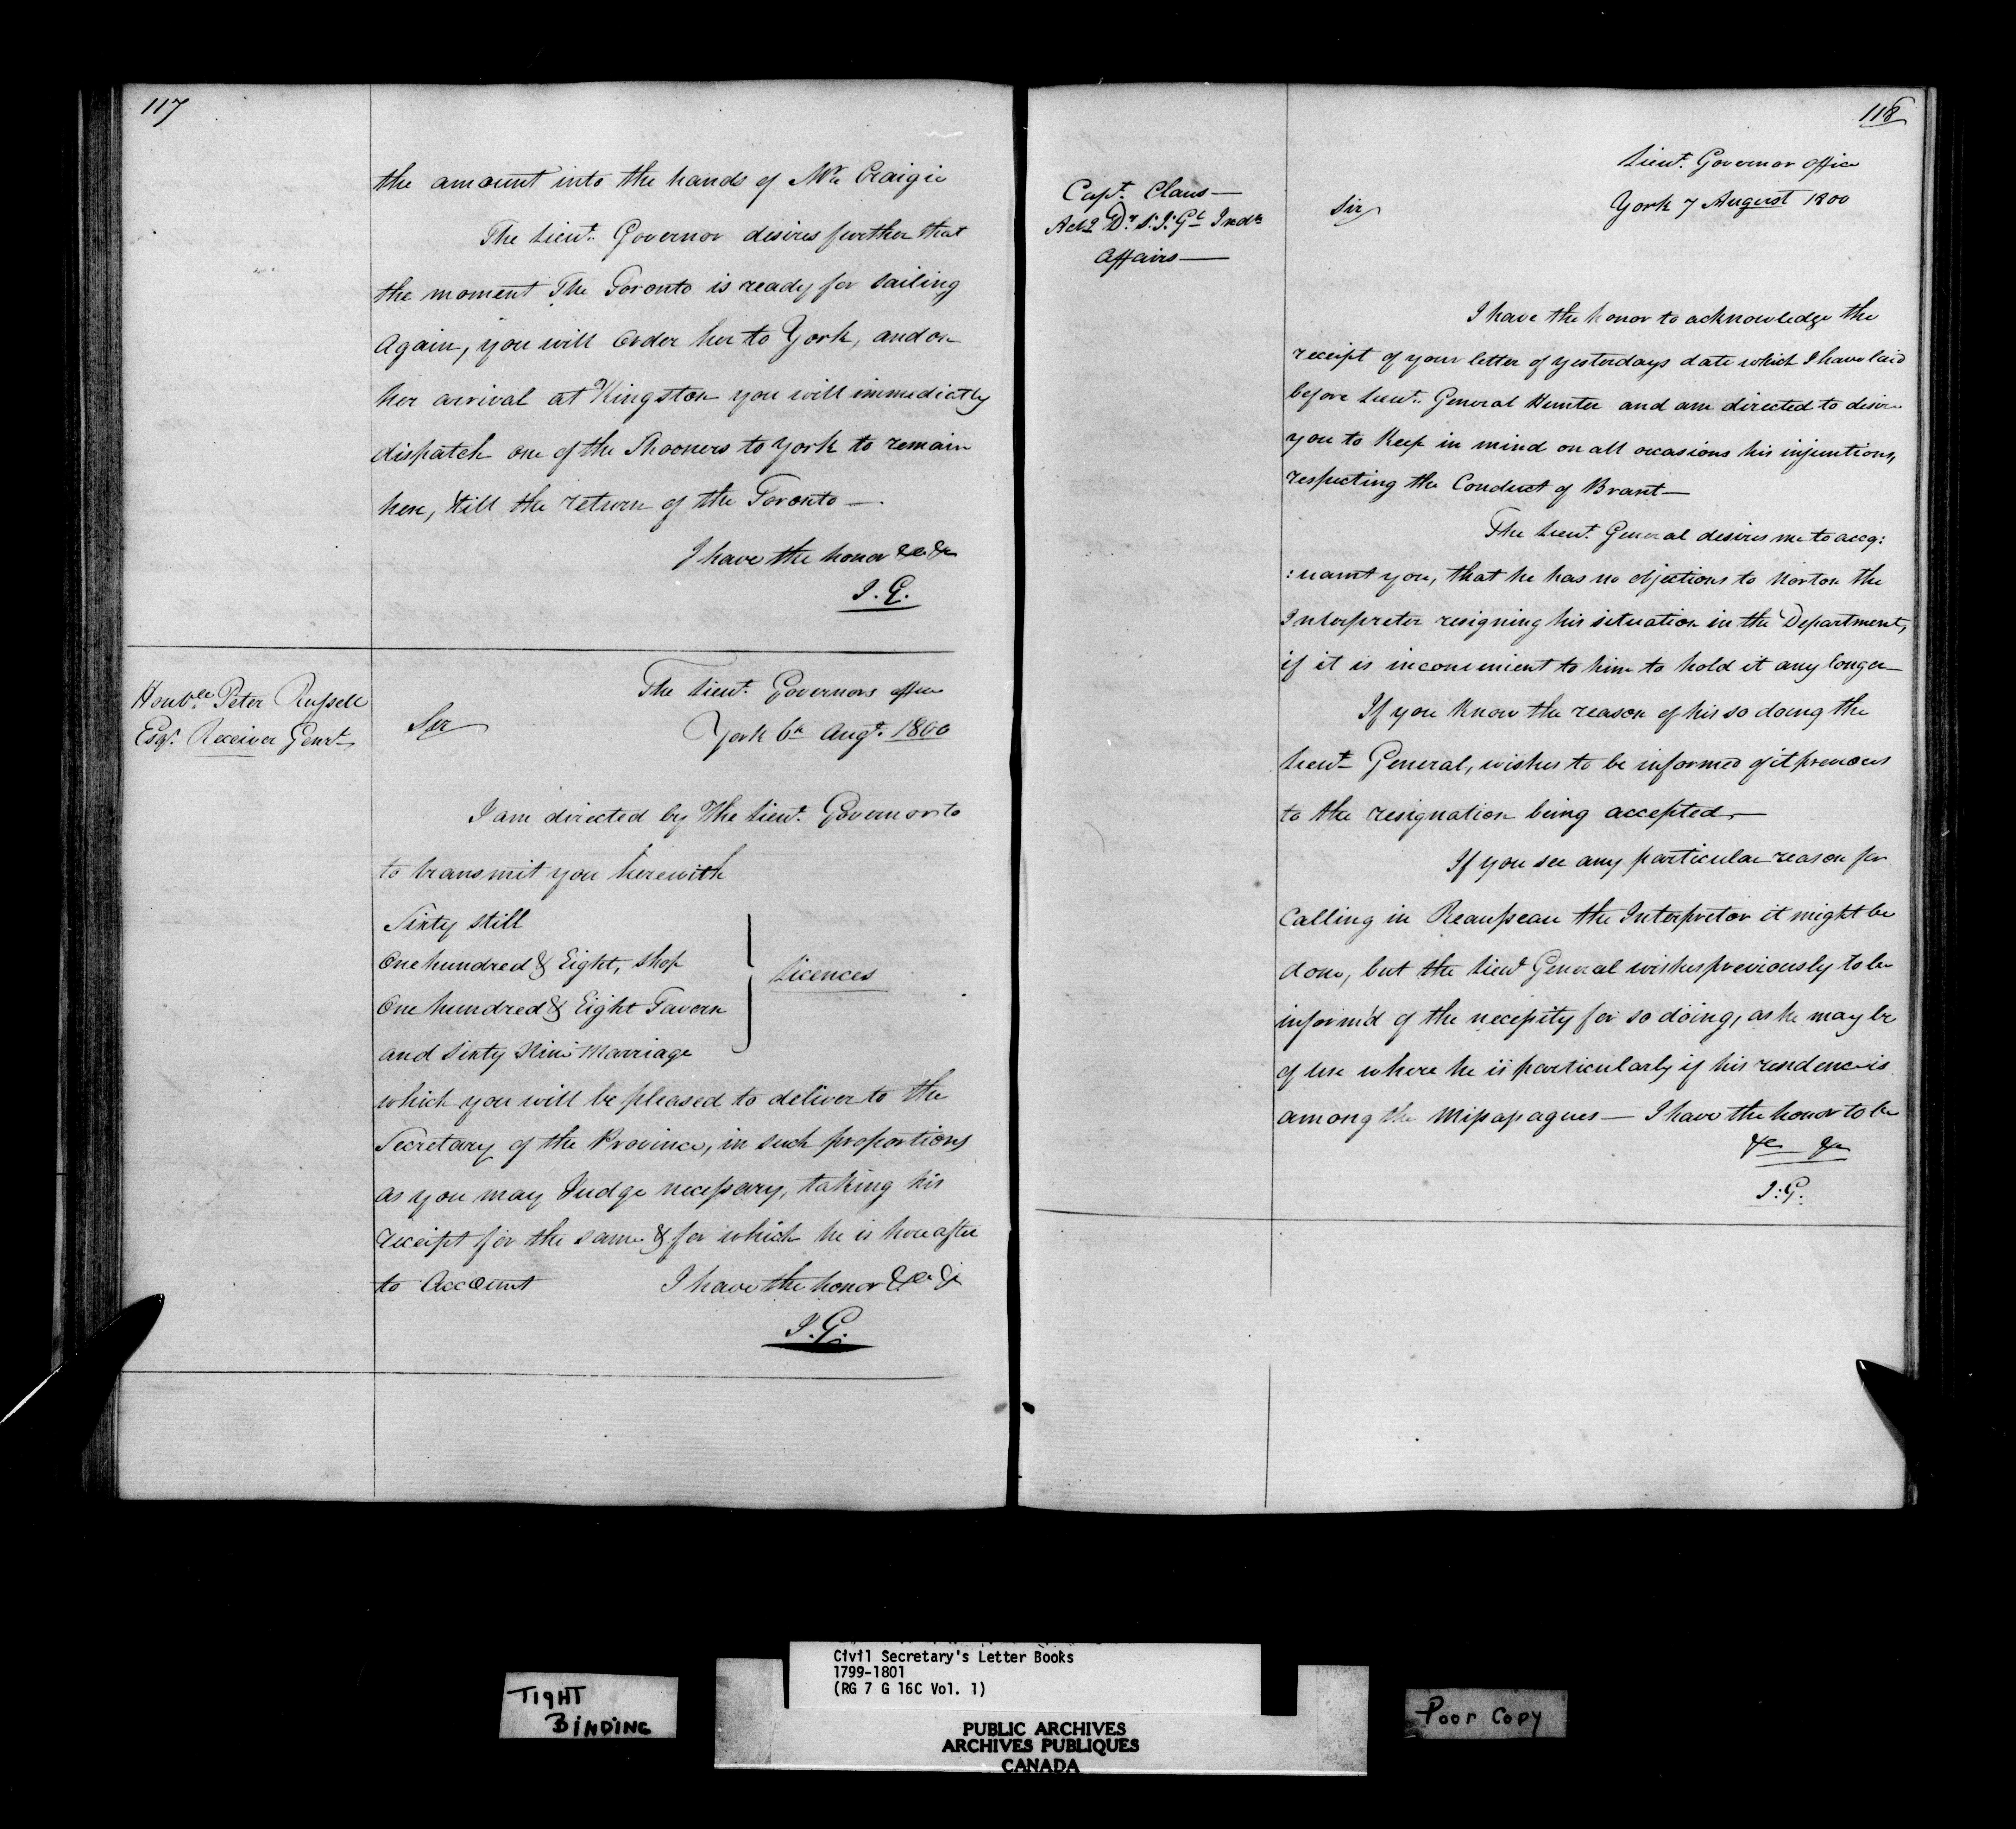 117
the amount into the hands of Mr. Craigie
The Lieut. Governor desires further that
the moment The Toronto is ready for sailing
Again, you will Order her to York, and on
her arrival at Kingston you will immedictly
dispatch one of the Shooners to York to remain
here, till the return of the Toronto —
I have the honor &c &c
J. G.
Honble. Peter Russell
Esqr. Receiver Genrl
The Lieut. Governors office
York 6th Augt. 1800
Sir
I am directed by The Lieut. Governor to
to transmit you herewith
Sixty still
One hundred & Eight, shop
One hundred & Eight Tavern
and Sixty Nine Marriage
Licences
which you will be pleased to deliver to the
Secretary of the Province, in such proportions
as you may Judge necessary, taking his
receipt for the same & for which he is hereafter
to Account I have the honor &c &c
J. G.
118
Capt. Claus —
Actg Dy. S. I. Gl Indn
Affairs —
Lieut. Governor office
York 7 August 1800
Sir
I have the honor to acknowledge the
receipt of your letter of yesterdays date which I have laid
before Lieut. General Hunter and am directed to desire
you to Keep in mind on all occasions his injuntions,
respecting the Conduct of Brant —
The Lieut. General desires me to acq:
:uaint you, that he has no objections to Norton the
Interpreter resigning his situation in the Department,
if it is inconvenient to him to hold it any longer
If you Know the reason of his so doing the
Lieut. General, wishes to be informed of it previous
to the resignation being accepted —
If you see any particular reason for
Calling in Beausseau the Interpretor it might be
done, but the Lieut General wishes previously to be
inform'd of the necessity for so doing, as he may be
of use where he is particularly if his residence is
among the Missasagues — I have the honor to be
&c &c
J. G.
TIGHT
BINDING
Civil Secretary's Letter Books
1799-1801
(RG 7 G 16C Vol. 1)
PUBLIC ARCHIVES
ARCHIVES PUBLIQUES
CANADA
Poor Copy